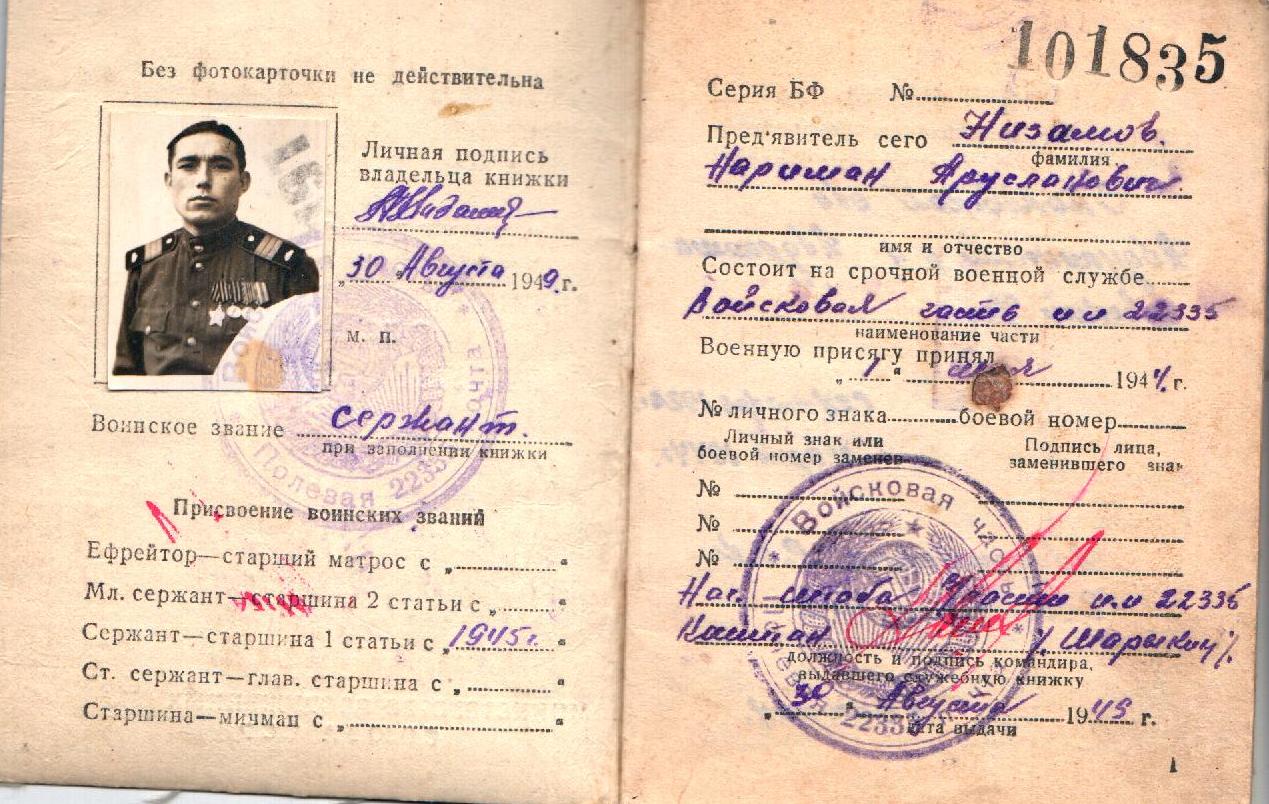 Без фотокарточки не действительна
Личная подпись
владельца книжки
„30 Августа 1949. г.
м. п.
Воинское звание сержант.
при заполнении книжки
Полевая 2233
Присвоение воинских званий
Ефрейтор—старший матрос с „ “
Мл. сержант—старшина 2 статьи с „ “
Сержант—старшина 1 статьи с „1945г. “
Ст. сержант—глав. старшина с „ “
Старшина—мичман с „ “
101835
Серия БФ №
Пред'явитель сего Низамов.
фамилия
Нариман Яруслакович
имя и отчество
Состоит на срочной военной службе
Войсковая часть п.п 22335
наименование части
Военную присягу принял
„ 1 “ мая 1944. г.
№ личного знака боевой номер
Личный знак или Подпись лица,
боевой номер заменен заменившего знак
№
№
№
Войсковая часть
Нач. штаба Части п.п 22335
Капитан /Шарыкин/.
должность и подпись командира,
выдавшего служебную книжку
„ 30 “ Августа 1949 г.
дата выдачи
1